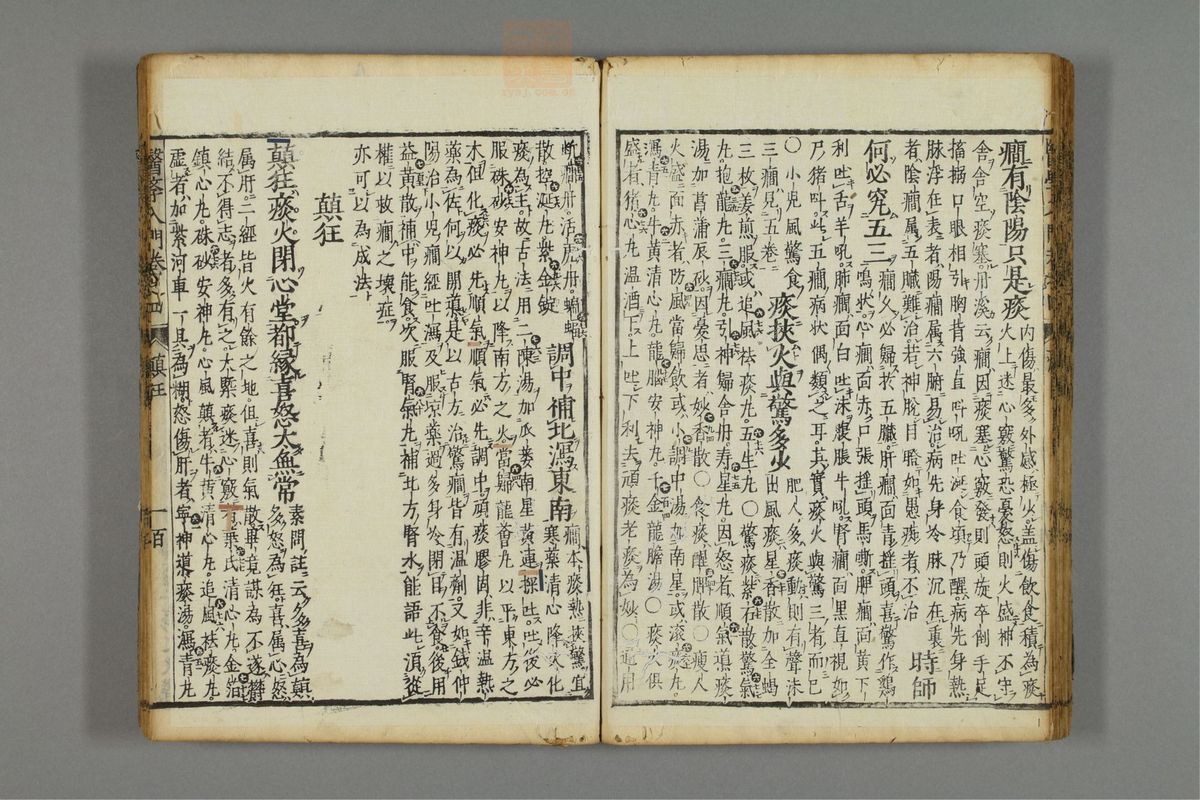 癇有陰陽只是痰內傷最多外感極少盖傷飲食積為痰
火上迷心竅驚恐憂怒則火盛神不守
舍舍空痰塞丹溪云癇因痰塞心竅發則頭旋卒倒手足
搐搦口眼相引胸背強直叫吼吐涎食頃乃醒病先身熱
脉浮在表者陽癇属六腑易治病先身冷脉沉在裏
者陰癇属五臟難治若神脫目瞪如愚痴者不治時師
何必究五三癇久必歸於五臟肝癇面青揺頭喜驚作鷄
鳴狀心癇面赤口張揺頭馬嘶脾癇面黃下
利吐舌羊吼肺癇面白吐沫腹脹牛吼腎癇面黑直視如
尸猪叫此五癇病状偶類之耳其實痰火與驚三者而已
○小児風驚食
三癇見五卷痰挾火與驚多少肥人多痰動則有聲沫
出風痰星香散加全蝎
三枚姜煎服或追風祛痰丸五生丸○驚痰紫石散驚氣
丸抱龍丸三癇丹引神歸舍丹寿星丸因怒者順氣導痰
湯加菖蒲辰砂因憂思者妙香散○食痰醒脾散○瘦人
火盛面赤者防風當歸飲或小調中湯加南星或滾痰丸
瀉青丸牛黃清心丸龍腦安神丸千金龍膽湯○痰火俱
盛者猪心丸温酒下上吐下利去頑痰老痰為妙○通用
断癇丹活虎丹蝴蝶
散控涎丸紫金錠調中補北瀉東南癇本痰熱挾驚宜
寒藥清心降火化
痰為主故古法用二陳湯加瓜蔞南星黃連探吐吐後必
服硃砂安神丸以降南方之火當歸龍薈丸以平東方之
木但化痰必先順氣順氣必先調中頑痰膠固非辛温熱
藥為佐何以開導是以古方治驚癇皆有温劑又如錢仲
陽治小児癇經吐瀉及服凉藥過多身冷閉目不食後用
益黃散補中能食次服腎氣丸補北方腎水能語此須從
權以救癇之壞症
亦可以為成法
顛狂
顛狂痰火閉心堂都縁喜怒太無常素問註云多喜為顛
多怒為狂喜属心怒
属肝二經皆火有餘之地但喜則氣散畢竟謀為不遂欝
結不得志者多有之大槩痰迷心竅葉氏清心丸金箔
鎮心丸硃砂安神丸心風顛者牛黃清心丸追風祛痰丸
虚者加紫河車一具為糊怒傷肝者寧神導痰湯瀉青丸
醫學入門卷之四
顛狂
一百